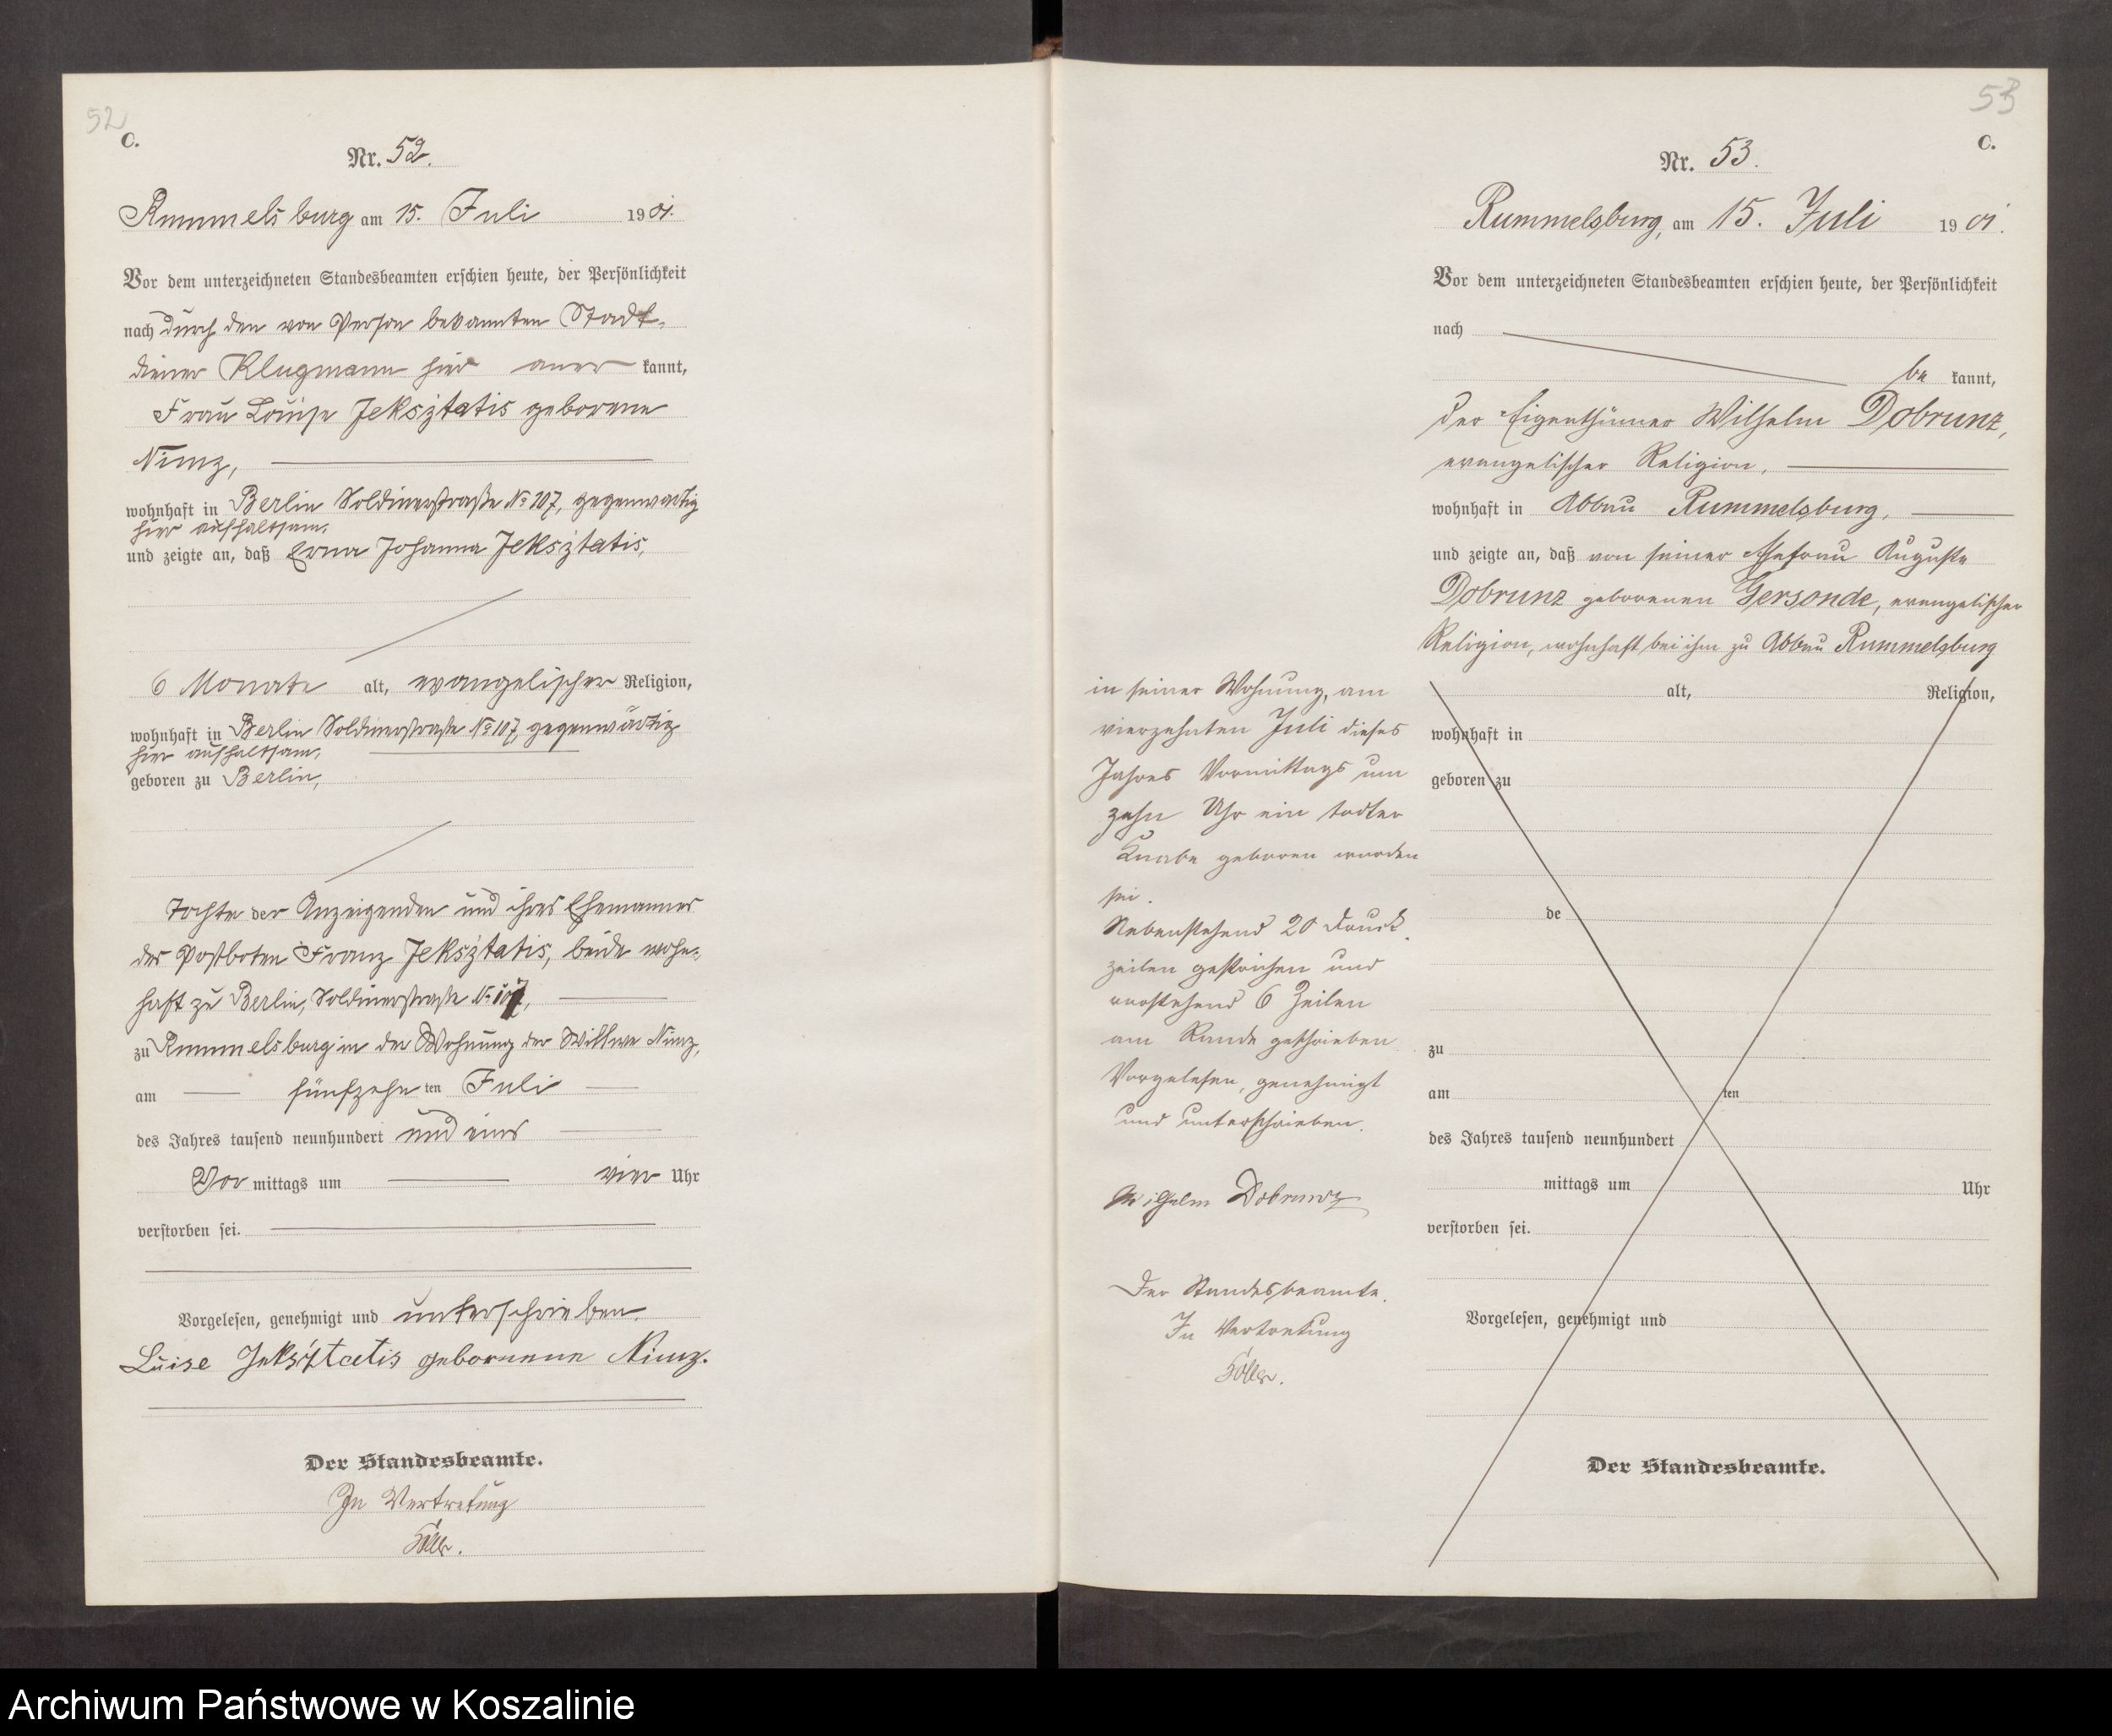 52
C.
Nr. 52.
Rummelsburg am 15. Juli 1901.
Vor dem unterzeichneten Standesbeamten erschien heute, der Persönlichkeit
nach durch den von Person bekannten Stadt-
diener Klugmann hier aner kannt,
Frau Louise Jeksztatis geborene
Nimz,
wohnhaft in Berlin Soldinerstraße No 107, gegenwärtig
hier aufhaltsam,
und zeigte an, daß Erna Johanna Jeksztatis,
6 Monate alt, evangelischer Religion,
wohnhaft in Berlin Soldinerstraße No 107, gegenwärtig
hier aufhaltsam,
geboren zu Berlin,
Tochter der Anzeigenden und ihres Ehemannes
des Postboten Franz Jeksztatis, beide wohn-
haft zu Berlin, Soldinerstraße No 107,
zu Rummelsburg in der Wohnung der Wittwe Nimz,
am fünfzehn ten Juli
des Jahres tausend neunhundert und eins
Vor mittags um vier Uhr
verstorben sei.
Vorgelesen, genehmigt und unterschrieben.
Luise Jeksztatis geborenene Nimz.
Der Standesbeamte.
In Vertretung
53
C.
Nr. 53.
Rummelsburg, am 15. Juli 1901.
Vor dem unterzeichneten Standesbeamten erschien heute, der Persönlichkeit
nach
be kannt,
der Eigenthümer Wilhelm Dobrunz,
evangelischer Religion,
wohnhaft in Abbau Rummelsburg,
und zeigte an, daß von seiner Ehefrau Auguste
Dobrunz geborenen Gersonde, evangelischer
Religion, wohnhaft bei ihm zu Abbau Rummelsburg
in seiner Wohnung, am
vierzehnten Juli dieses
Jahres Vormittags um
zehn Uhr ein todter
Knabe geboren worden
sei.
Nebenstehend 20 Druck-
zeilen gestrichen und
vorstehend 6 Zeilen
am Rande geschrieben
Vorgelesen, genehmigt
und unterschrieben.
Wilhelm Dobrunz
Der Standesbeamte.
In Vertretung
alt, Religion,
wohnhaft in
geboren zu
de
zu
am ten
des Jahres tausend neunhundert
mittags um Uhr
verstorben sei.
Vorgelesen, genehmigt und
Der Standesbeamte.
Archiwum Państwowe w Koszalinie